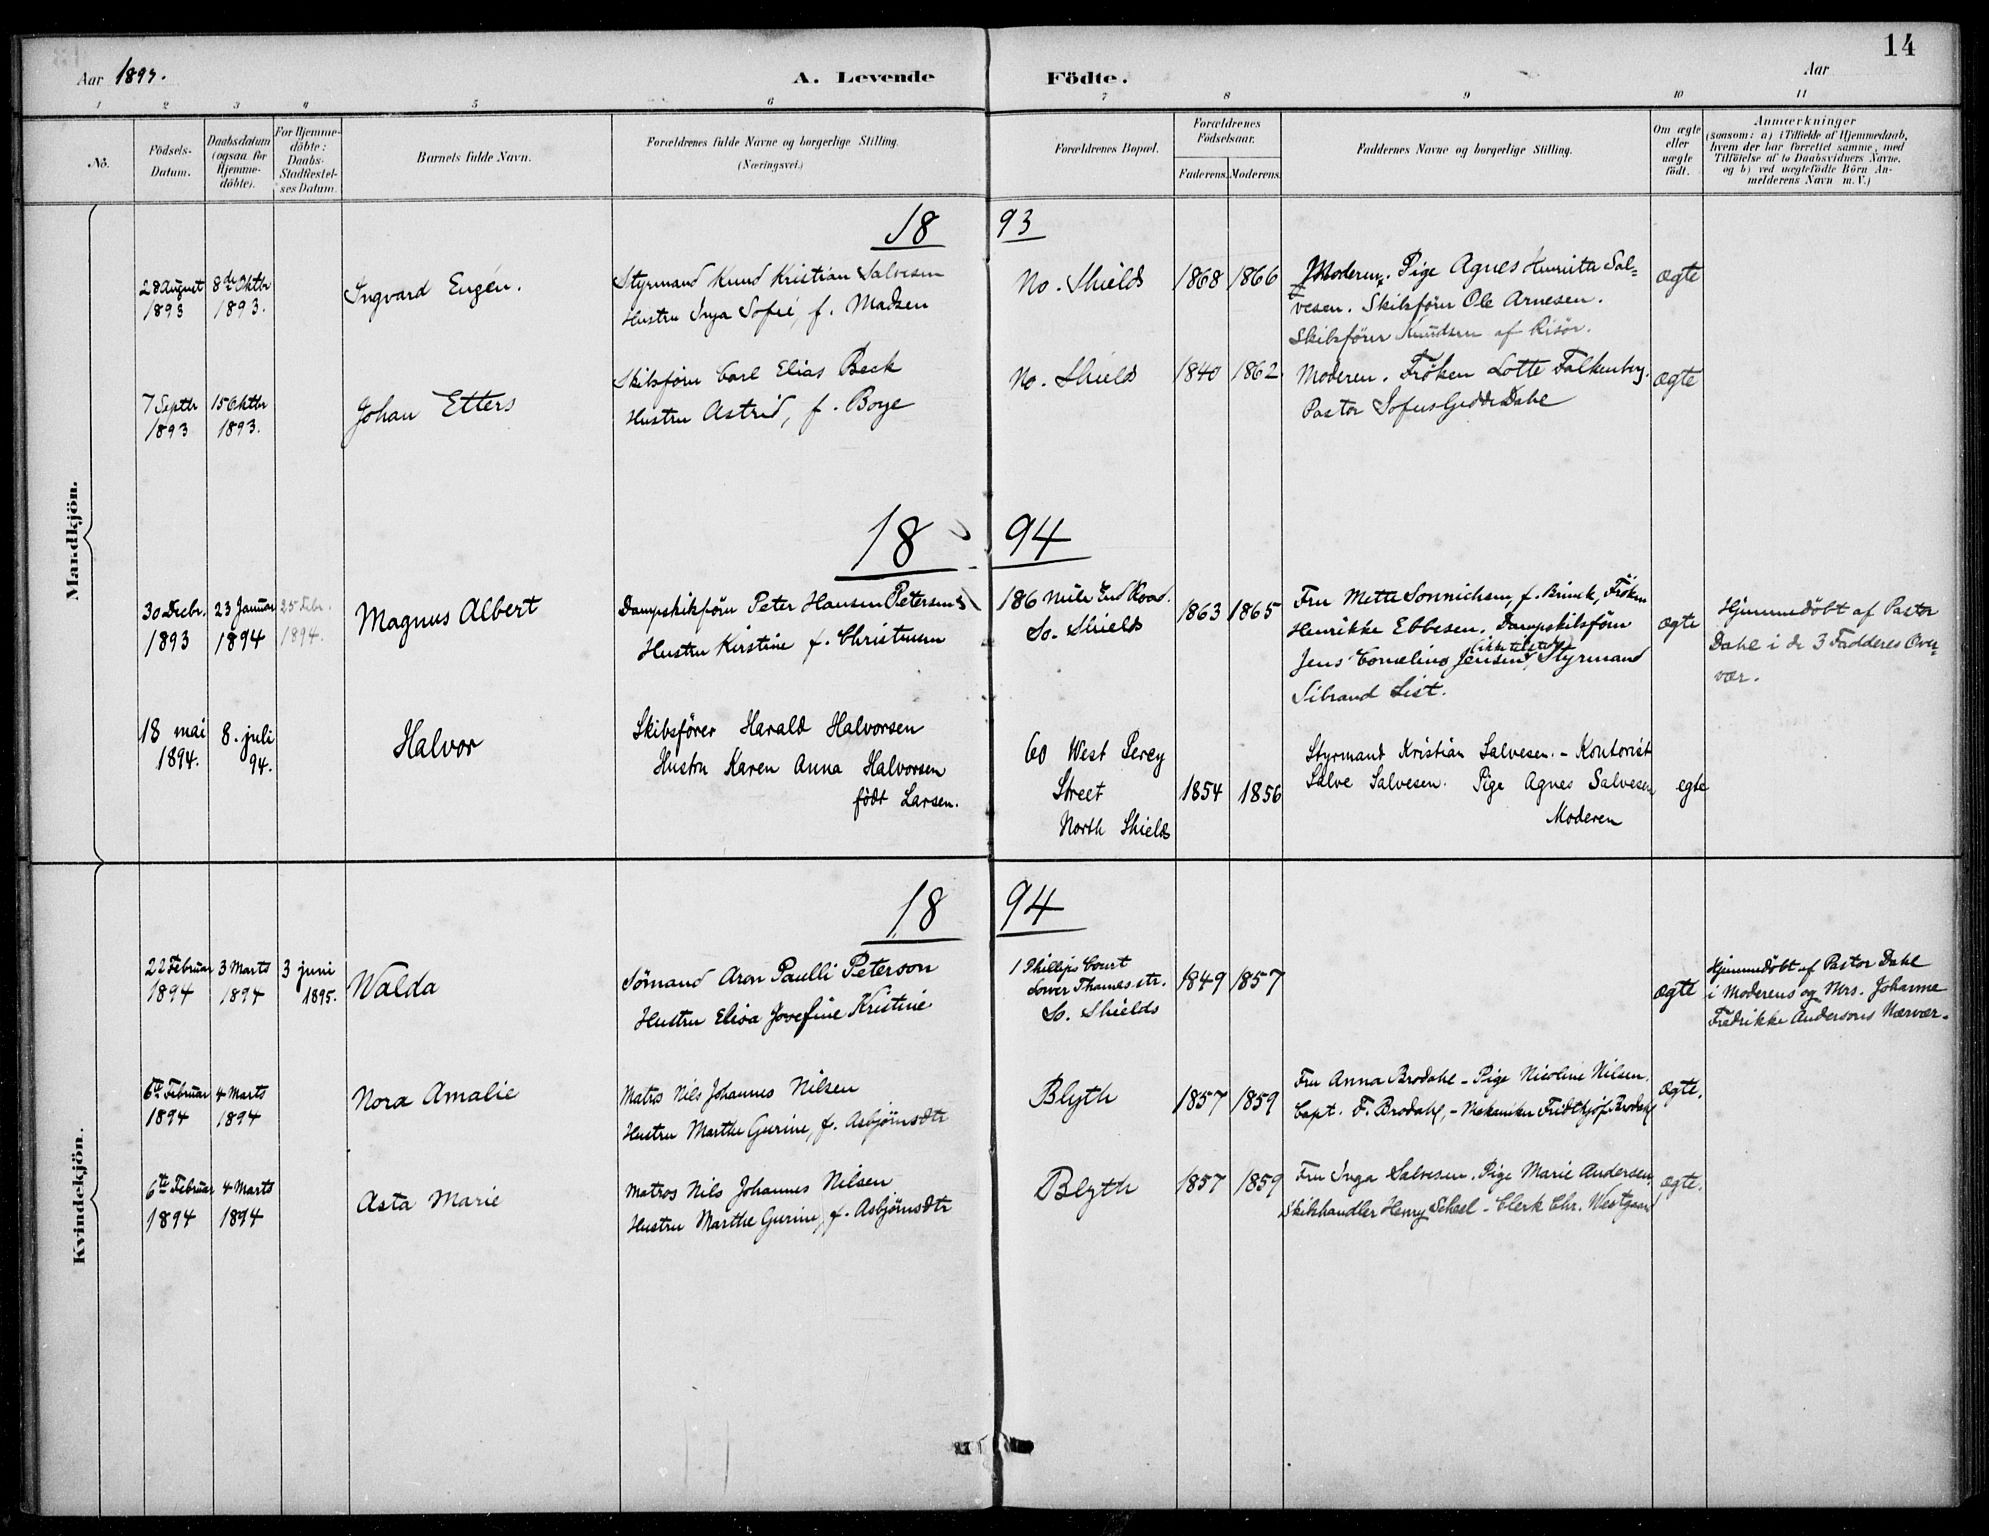 14
Aar 1893.
A. Levende Födte.
Aar
1 2 3 4 5 6 7 8 9 10 11
Nö.
Födsels-
Datum.
Daabsdatum
(ogsaa for
Hjemme-
döbte).
For Hjemme-
döbte:
Daabs-
Stadfæstel-
ses Datum.
Barnets fulde Navn.
Forældrenes fulde Navne og borgerlige Stilling.
(Næringsvei.)
Forældrenes Bopæl.
Forældrenes
Födselsaar.
Faderens.
Moderens.
Faddernes Navne og borgerlige Stilling.
Om ægte
eller
uægte
födt.
Anmærkninger
(saasom: a) i Tilfælde af Hjemmedaab,
hvem der har forrettet samme, med
Tilföielse af to Daabsvidners Navne.
og b) ved uægtefödte Börn An-
melderens Navn m. V.)
Mandkjön.
1893
28 August
1893
8de Oktbr
1893.
Ingvard Eugén.
Styrmand Knud Kristian Salvesen
Hustru Inga Sofie, f. Madsen
No. Shields
1868
1866
Moderen. Pige Agnes Henriette Sal-
vesen. Skibsförer Ole Arnesen.
Skibsförer Knudsen af Risör.
ægte
7 Septbr
1893
15 Oktbr
1893.
Johan Etters
Skibsförer Carl Elias Beck
Hustru Astrid, f. Boye
No. Shields
1840
1862
Moderen. Fröken Lotte Falkenberg.
Pastor Sofus Gedde Dahl
ægte
1894
30 Decbr.
1893
23 Januar
1894
25 Febr.
1894.
Magnus Albert
Dampskibsförer Peter Hansen Petersen
Hustru Kirstine f. Christensen
186 Mile End Road.
So. Shields
1863
1865
Fru Mette Sonnichsen, f. Brinck, Fröken
Henrikke Ebbesen. Dampskibsförer
(ikke tilstede)
Jens Cornelius Jensen, Styrmand
Sibrand List.
ægte
Hjemmedöbt af Pastor
Dahl i de 3 Fadderes Over-
vær.
18 mai
1894.
8. juli
94.
Halvor
Skibsförer Harald Halvorsen
Hustru Karen Anna Halvorsen
födt Larsen.
60 West Percy
Street
North Shields
1854
1856
Styrmand Kristian Salvesen. - Kontorist
Salve Salvesen. Pige Agnes Salvesen
Moderen
egte
Kvindekjön.
1894
22 Februar
1894
3 Marts
1894
3 juni
1895.
Walda
Sömand Aron Paulli Peterson
Hustru Elisa Josefine Kristine
1 Phillips Court
Lower Thames str.
So. Shields
1849
1857
ægte
Hjemmedöbt af Pastor Dahl
i Moderens og Mrs. Johanne
Fredrikke Andersons Nærvær.
6te Februar
1894
4 Marts
1894
Nora Amalie
Matros Nils Johannes Nilsen
Hustru Marthe Gurine, f. Asbjörnsdtr
Blyth
1857
1859
Fru Anna Brodahl - Pige Nicoline Nilsen.
Capt. F. Brodahl, - Mekaniker Fridthjöf Brodahl
ægte.
6te Februar
1894
4 Marts
1894
Asta Marie
Matros Nils Johannes Nilsen
Hustru Marthe Gurine, f. Asbjörnsdtr
Blyth
1857
1859
Fru Inga Salvesen. Pige Marie Andersen
Skibshandler Henry Scheel - Clerk Chr. Westgaard
ægte.